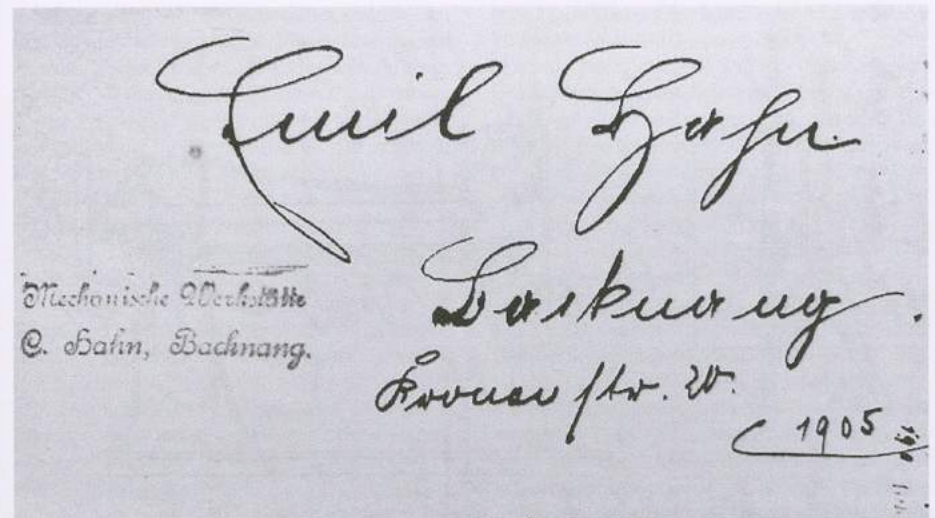 Emil Hahn
Backnang.
Mechanische Werkstätte
C. Hahn, Backnang.
Kronenstr. 20.
1905